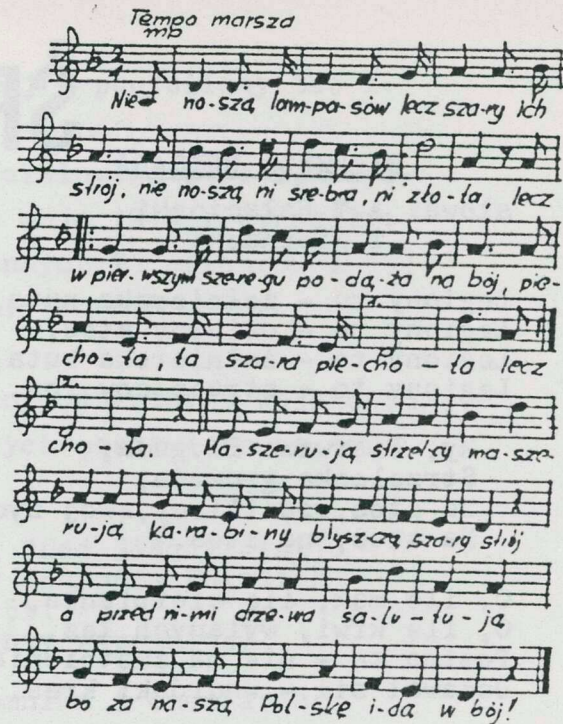 Tempo marsza
mp
2
4
Nie no-szą lam-pa-sów lecz sza-ry ich
strój, nie no-szą ni sre-bra, ni zło-ta, lecz
w pier-wszym sze-re-gu po-dą-ża na bój, pie-
1.
cho-ta, ta sza-ra pie-cho-ta lecz
2.
cho-ta. Ma-sze-ru-ją strzel-cy ma-sze-
ru-ją ka-ra-bi-ny błysz-czą sza-ry strój
a przed ni-mi drze-wa sa-lu-tu-ją
bo za na-szą Pol-skę i-dą w bój!